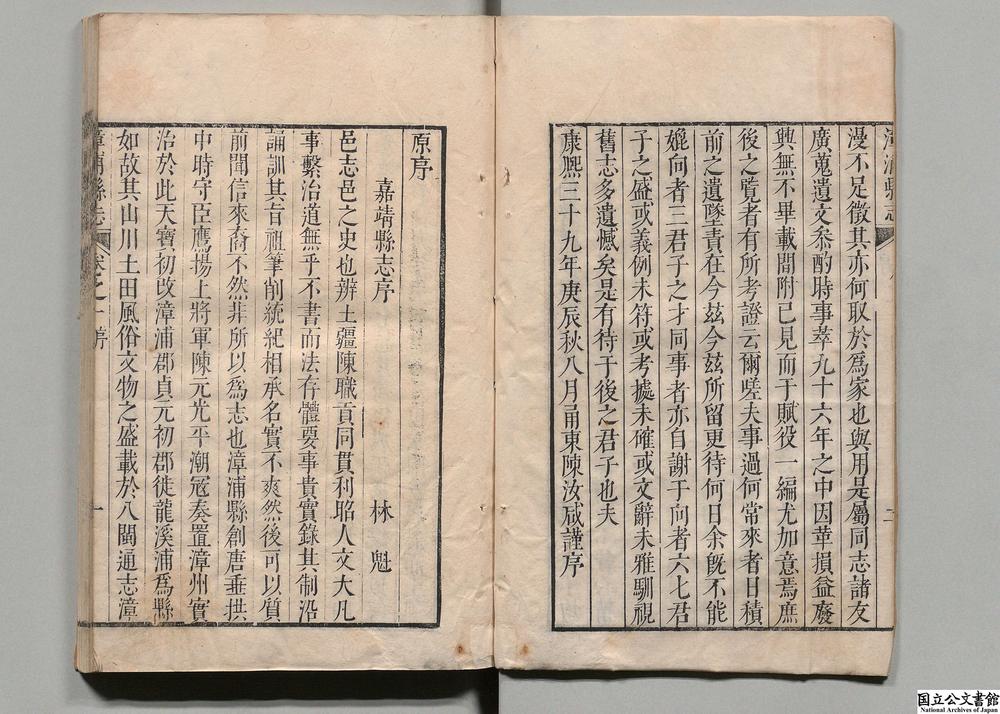 漳浦縣志
漫不足徵其亦何取於爲家也與用是屬同志諸友
廣蒐遺文叅酌時事萃九十六年之中因革損益廢
興無不畢載間附己見而于賦役一編尤加意焉庶
後之覽者有所考證云爾嗟夫事過何常來者日積
前之遺墜責在今玆今玆所留更待何日余旣不能
媲向者三君子之才同事者亦自謝于向者六七君
子之盛或義例未符或考據未確或文辭未雅馴視
舊志多遺憾矣是有待于後之君子也夫
康熙三十九年庚辰秋八月甬東陳汝咸謹序
二
原序
嘉靖縣志序
林魁
邑志邑之史也辨土疆陳職貢同貫利昭人文大凡
事繫治道無乎不書而法存體要事貴實錄其制沿
誦訓其旨祖筆削統紀相承名實不爽然後可以質
前聞信來裔不然非所以爲志也漳浦縣創唐垂拱
中時守臣鷹揚上將軍陳元光平潮冦奏置漳州實
治於此天寶初改漳浦郡貞元初郡徙龍溪浦爲縣
如故其山川土田風俗文物之盛載於八閩通志漳
漳浦縣志
卷之一序
一
国立公文書館
National Archives of Japan